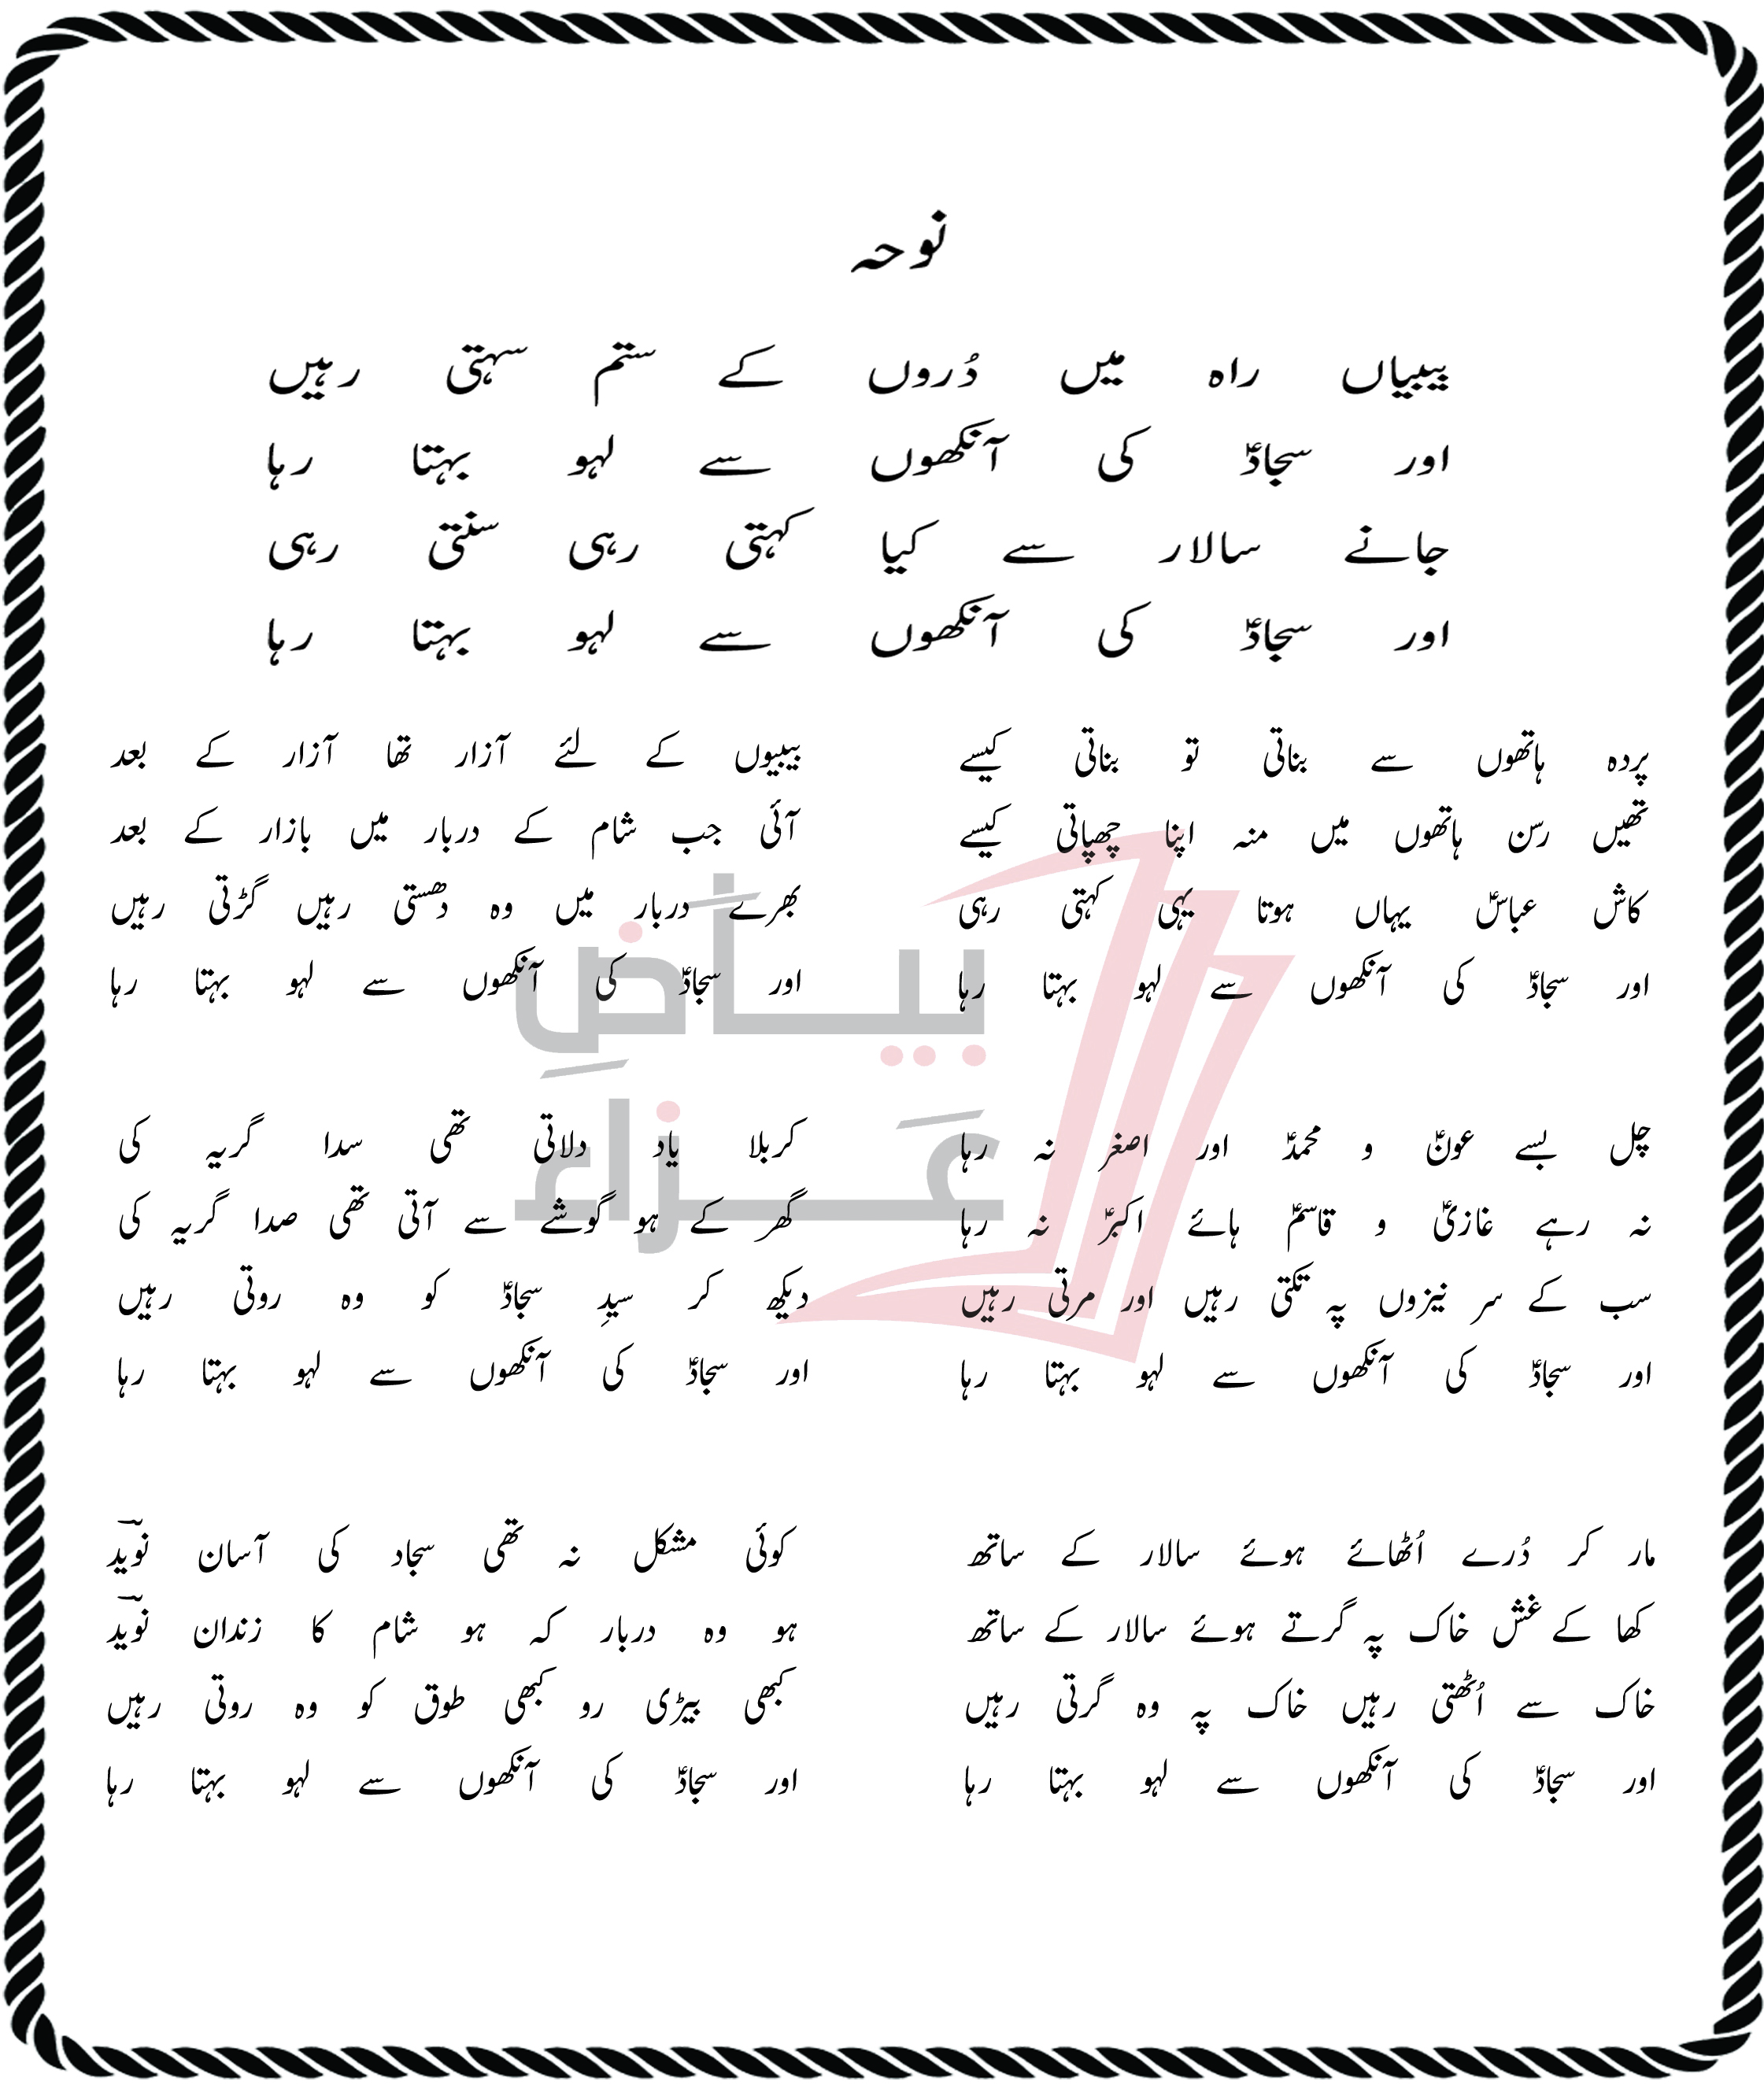 نوحہ
بیبیاں راہ میں دُروں کے ستم سہتی رہیں
اور سجادؑ کی آنکھوں سے لہو بہتا رہا
جانے سالار سے کیا کہتی رہی سنتی رہی
اور سجادؑ کی آنکھوں سے لہو بہتا رہا
پردہ ہاتھوں سے بناتی تو بناتی کیسے
تھیں رسن ہاتھوں میں منہ اپنا چھپاتی کیسے
کاش عباسؑ یہاں ہوتا یہی کہتی رہی
اور سجادؑ کی آنکھوں سے لہو بہتا رہا
بیبیوں کے لئے آزار تھا آزار کے بعد
آئی جب شام کے دربار میں بازار کے بعد
بھرے دربار میں وہ دھستی رہیں گڑتی رہیں
اور سجادؑ کی آنکھوں سے لہو بہتا رہا
بیاضِ
عَزاء
چل بسے عونؑ و محمدؑ اور اصغر نہ رہا
نہ رہے غازیؑ و قاسمؑ ہائے اکبرؑ نہ رہا
سب کے سر نیزوں پہ تکتی رہیں اور مرتی رہیں
اور سجادؑ کی آنکھوں سے لہو بہتا رہا
کربلا یاد دلاتی تھی سدا گریہ کی
گھر کے ہو گوشے سے آتی تھی صدا گریہ کی
دیکھ کر سیدِ سجادؑ کو وہ روتی رہیں
اور سجادؑ کی آنکھوں سے لہو بہتا رہا
مار کر دُرے اُٹھائے ہوئے سالار کے ساتھ
کھا کے غش خاک پہ گرتے ہوئے سالار کے ساتھ
خاک سے اُٹھتی رہیں خاک پہ وہ گرتی رہیں
اور سجادؑ کی آنکھوں سے لہو بہتا رہا
کوئی مشکل نہ تھی سجاد کی آسان نویدؔ
ہو وہ دربار کہ ہو شام کا زندان نویدؔ
کبھی بیڑی رو کبھی طوق کو وہ روتی رہیں
اور سجادؑ کی آنکھوں سے لہو بہتا رہا